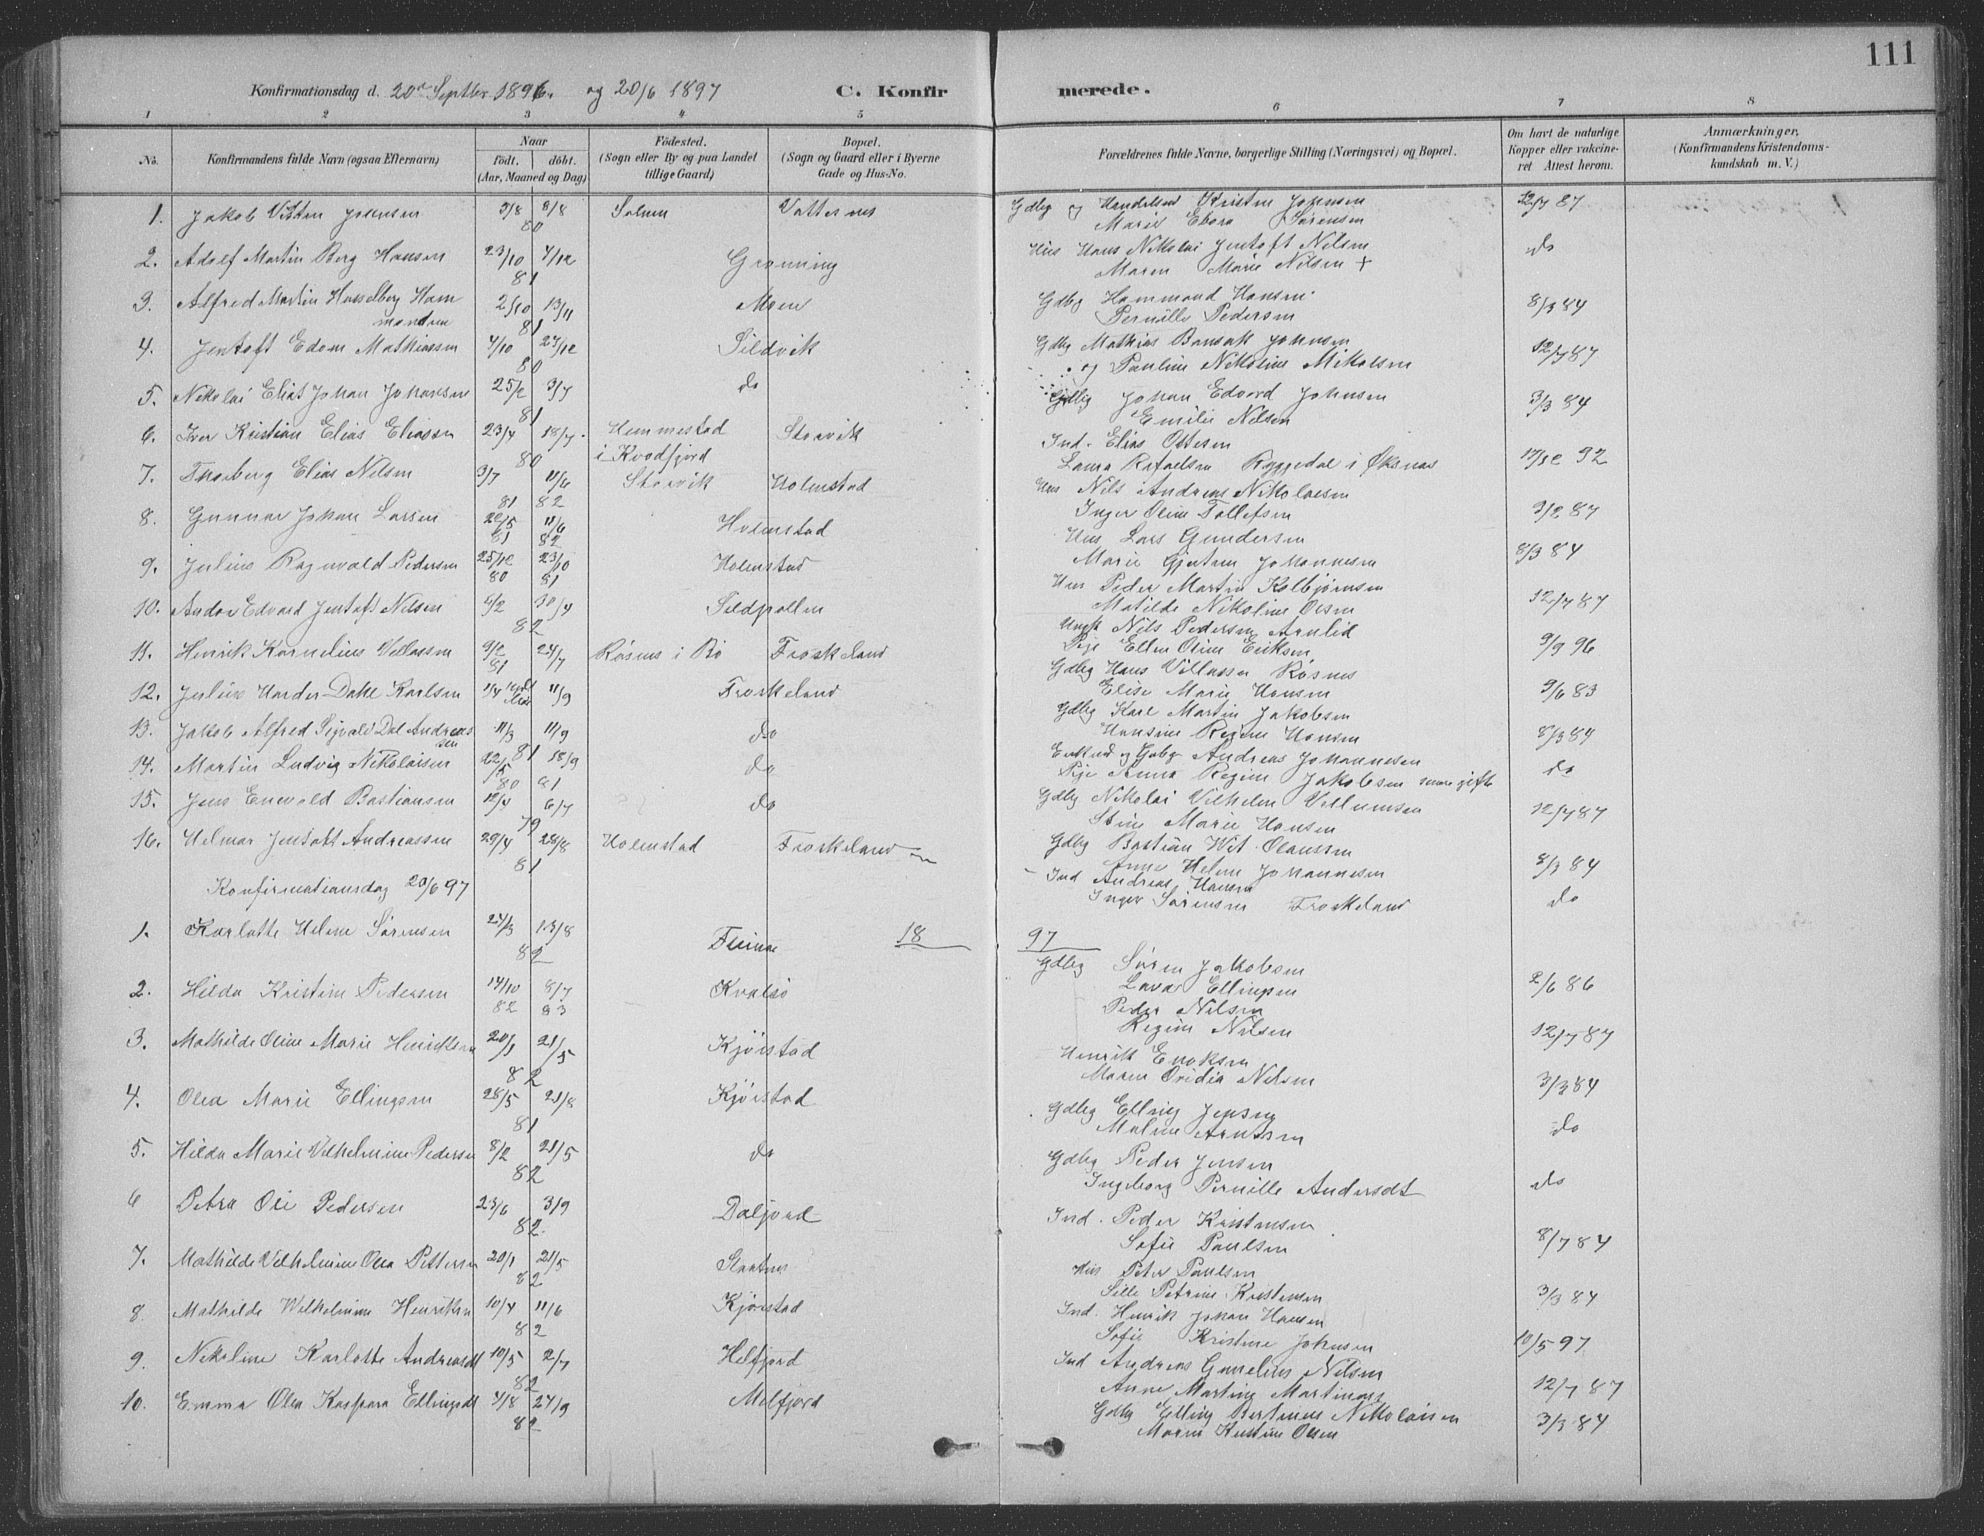 111
Konfirmationsdag d. 20de Septbr 1896. og 20/6 1897 C. Konfirmerede.
1 2 3 4 5 6 7 8
No. Konfirmandens fulde Navn (ogsaa Efternavn) Naar födt. döbt. (Aar, Maaned og Dag) Födested. (Sogn eller By og paa Landet tillige Gaard) Bopæl. (Sogn og Gaard eller i Byerne Gade og Hus-No. Forældrenes fulde Navne, borgerlige Stilling (Næringsvei) og Bopæl. Om havt de naturlige Kopper eller vakcineret Attest herom. Anmærkninger, (Konfirmandens Kristendomskundskab m. V.)
1. Jakob Jensen 3/8 8/8 80 Vatternes Gdbrg og Kristen Johnsen 12/7 87
Marie Sørensen
2. Adolf Martin Berg Hansen 23/10 4/12 81 Grønning Hus Hans Nikolai Jentoft Nilsen do
Maren Marie Nilsen +
3. Alfred Martin Hasselberg Hammondsen 2/10 13/11 81 Moen Gdbg Hammond Hansen 8/3 84
Pernille Pedersen
4. Jentoft Edom Mathiassen 4/10 27/12 80 Sildvik Gdbg Mathias Johnsen 12/7 87
og Pauline Nikoline Mikalsen
5. Nikolai Elias Johan Johansen 25/2 3/7 81 do Gdbg Johan Edvard Johnsen 3/3 84
Emilie Nilsen
6. Iver Kristian Elias Eliassen 23/4 18/7 80 Hemmestad i Kvædfjord Storvik Ind. Elias Ottesen
Laura Rafaelsen i Øksnes 17/12 92
7. Thorberg Elias Nilsen 3/7 81 11/6 82 Storvik Holmstad Hus Nils Andreas Nikolaisen
Inger Oline Tollefsen 3/2 87
8. Gunnar Johan Larsen 22/5 81 11/6 82 Holmstad Hus Lars Gundersen
Marie Johannesen 8/3 84
9. Julius Ragnvald Pedersen 25/12 80 23/10 81 Holmstad Hus Peder Martin Kolbjørnsen
Matilde Nikoline Olsen 12/7 87
10. Andor Edvard Jentoft Nilsen 5/2 30/4 82 Sildpollen Ungk Nils Pedersen Arnlid
Pige Ellen Oline Eriksen 9/9 96
11. Henrik Kornelius Villassen 9/2 81 24/7 Røsnes i Bø Froskeland Gdbg Hans Villassen Røsnes
Elise Marie Hansen 9/6 83
12. Julius Harder Dahl Karlsen 11/4 11/9 Froskeland Gdbg Karl Martin Jakobsen
Hansine Regine Hansen 8/3 84
13. Jakob Alfred Sigvald Dal Andreassen 11/3 11/9 81 do Enkemd og Gdbg Andreas Johannesen
Pige Anna Regine Jakobsen do
14. Martin Ludvig Nikolaisen 22/5 80 18/9 81 do Gdbg Nikolai Vilhelm Villumsen
Stine Marie Hansen 12/7 87
15. Jens Enevold Bastiansen 12/4 6/7 79 do Gdbg Bastian Wit Olaussen
Anne Helene Johannesen 8/3 84
16. Helmer Jentoft Andreassen 29/4 28/8 81 Holmstad Froskeland Ind Andreas Hansen
Inger Sørensen Froskeland do
Konfirmationsdag 20/6 97
18 97
1. Karlotte Helene Sørensen 24/3 13/8 82 Gdbg Søren Jakobsen
Lava Ellingsen 2/6 86
2. Hilda Kristine Pedersen 14/10 82 8/7 83 Kvalsø Peder Nilsen
Regine Nilsen 12/7 87
3. Mathilde Oline Marie Henriksen 20/1 21/5 82 Kjørstad Henrik Enoksen
Maren Nilsen 3/3 84
4. Olea Marie Ellingsen 28/5 21/8 81 Kjørstad Gdbg Elling Jensen
Maline do
5. Hilda Marie Vilhelmine Pedersen 8/2 21/5 82 do Gdbg Peder Jensen
Ingeborg Pernille Andersdt do
6 Petra Oli Pedersen 23/6 3/9 82 Daljord Ind. Peder Kristensen
Sofie Paulsen 8/7 84
7. Mathilde Vilhelmine Olea Pettersen 20/1 21/5 82 Slaatnes Hus Peter Paulsen
Sille Petrine Kristensen 3/3 84
8. Mathilde Wilhelmine Henriksen 10/4 11/6 82 Kjørstad Ind. Henrik Johan Hansen
Sofie Kristine Johnsen 10/5 97
9. Nikoline Karlotte Andreasdt 10/5 2/7 82 Helfjord Ind Andreas Nilsen
Anne Martine 12/7 87
10. Emma Olea Kaspara Ellingsdt 4/8 24/9 82 Melfjord Gdbg Elling Bertinus Nikolaisen
Maren Kristine Olsen 3/3 84